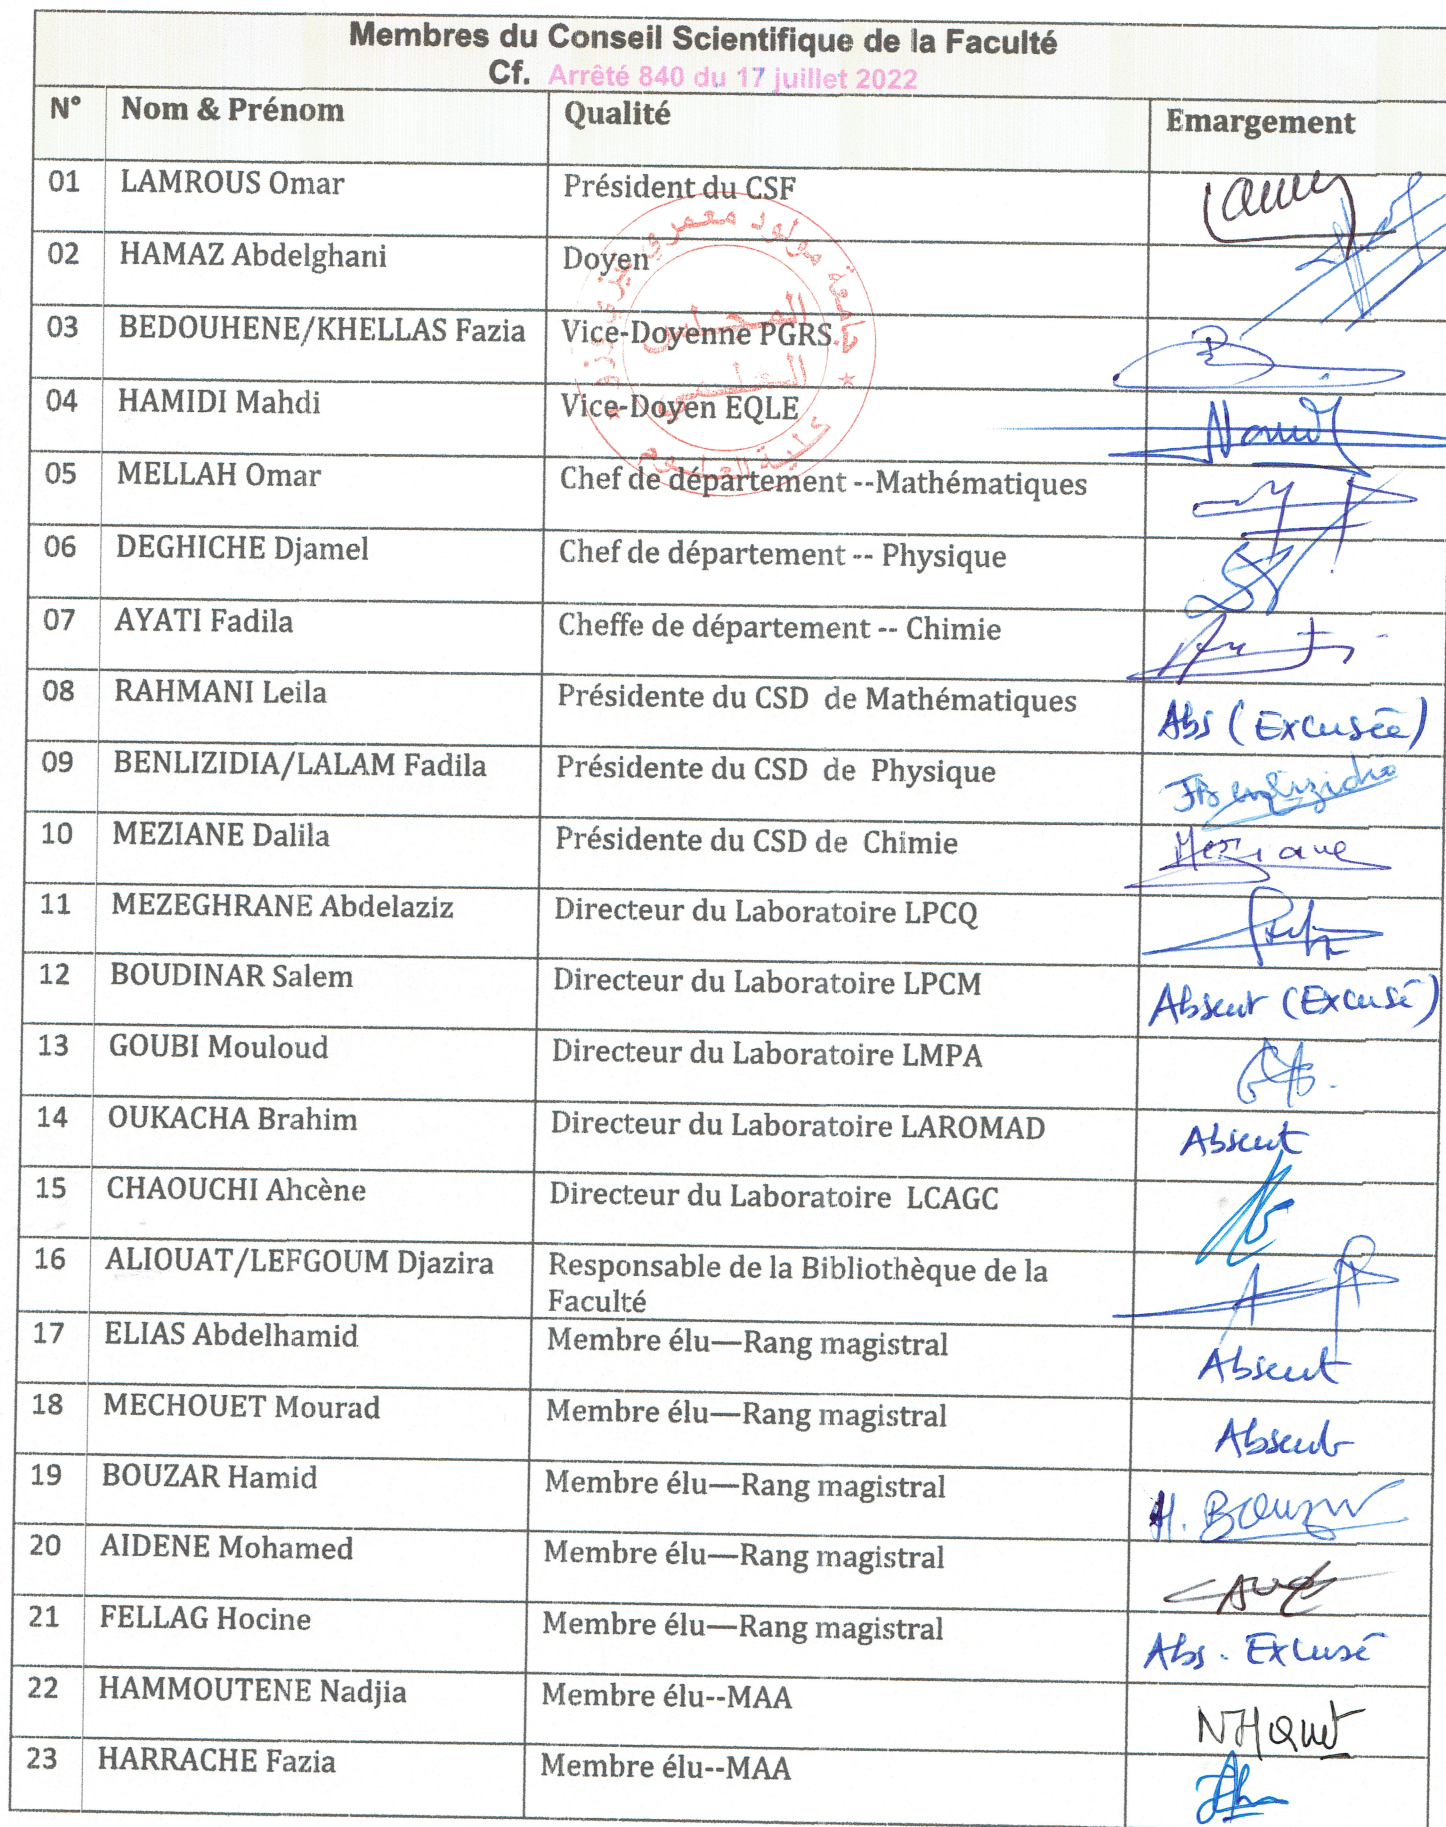 Membres du Conseil Scientifique de la Faculté
Cf. Arrêté 840 du 17 juillet 2022
N° Nom & Prénom Qualité Emargement
01 LAMROUS Omar Président du CSF
02 HAMAZ Abdelghani Doyen
03 BEDOUHENE/KHELLAS Fazia Vice-Doyenne PGRS
04 HAMIDI Mahdi Vice-Doyen EQLE
05 MELLAH Omar Chef de département --Mathématiques
06 DEGHICHE Djamel Chef de département -- Physique
07 AYATI Fadila Cheffe de département -- Chimie
08 RAHMANI Leila Présidente du CSD de Mathématiques Abs (Excusée)
09 BENLIZIDIA/LALAM Fadila Présidente du CSD de Physique FBenlizidia
10 MEZIANE Dalila Présidente du CSD de Chimie Meziane
11 MEZEGHRANE Abdelaziz Directeur du Laboratoire LPCQ
12 BOUDINAR Salem Directeur du Laboratoire LPCM Absent (Excusé)
13 GOUBI Mouloud Directeur du Laboratoire LMPA
14 OUKACHA Brahim Directeur du Laboratoire LAROMAD Absent
15 CHAOUCHI Ahcène Directeur du Laboratoire LCAGC
16 ALIOUAT/LEFGOUM Djazira Responsable de la Bibliothèque de la
Faculté
17 ELIAS Abdelhamid Membre élu—Rang magistral Absent
18 MECHOUET Mourad Membre élu—Rang magistral Absent
19 BOUZAR Hamid Membre élu—Rang magistral H. Bouzar
20 AIDENE Mohamed Membre élu—Rang magistral
21 FELLAG Hocine Membre élu—Rang magistral Abs. Excusé
22 HAMMOUTENE Nadjia Membre élu--MAA
23 HARRACHE Fazia Membre élu--MAA
جامعة مولود معمري تيزي وزو
المجلس
العلمي
كلية العلوم